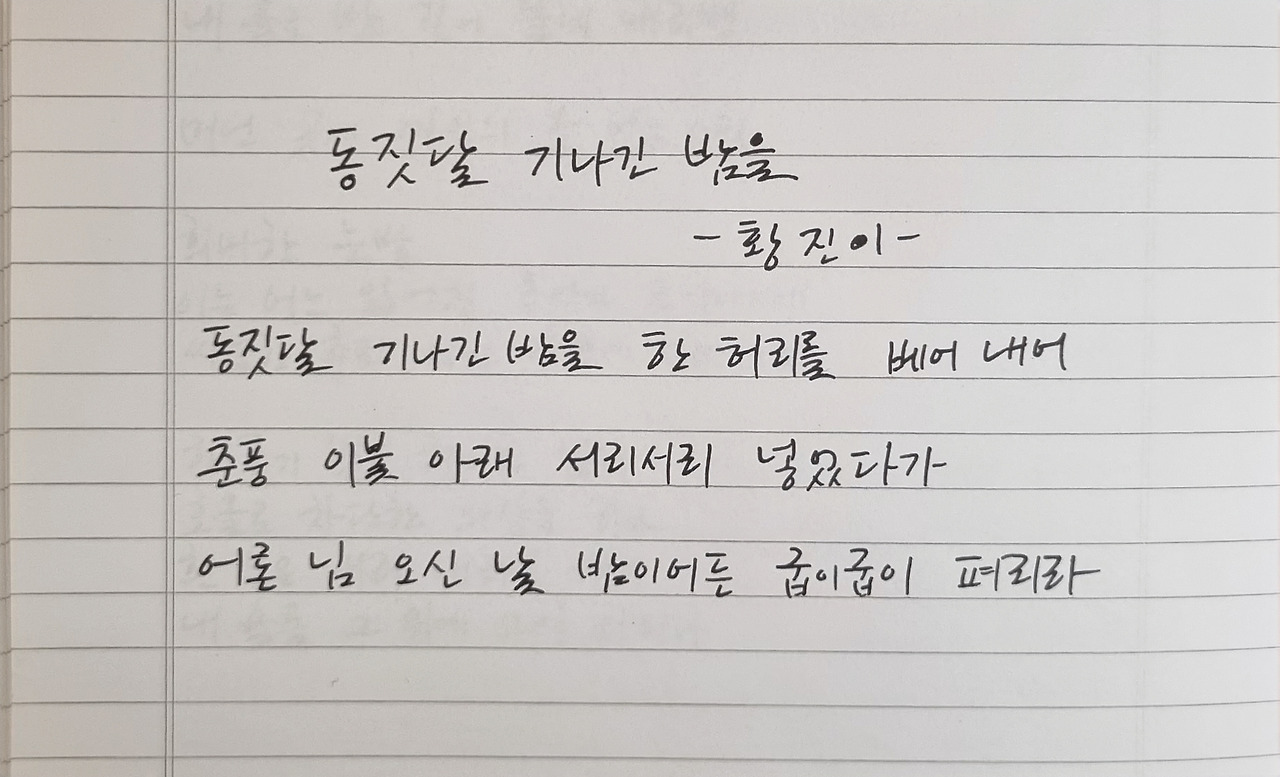 동짓달 기나긴 밤을
- 황진이 -
동짓달 기나긴 밤을 한 허리를 베어 내어
춘풍 이불 아래 서리서리 넣었다가
어론 님 오신 날 밤이어든 굽이굽이 펴리라